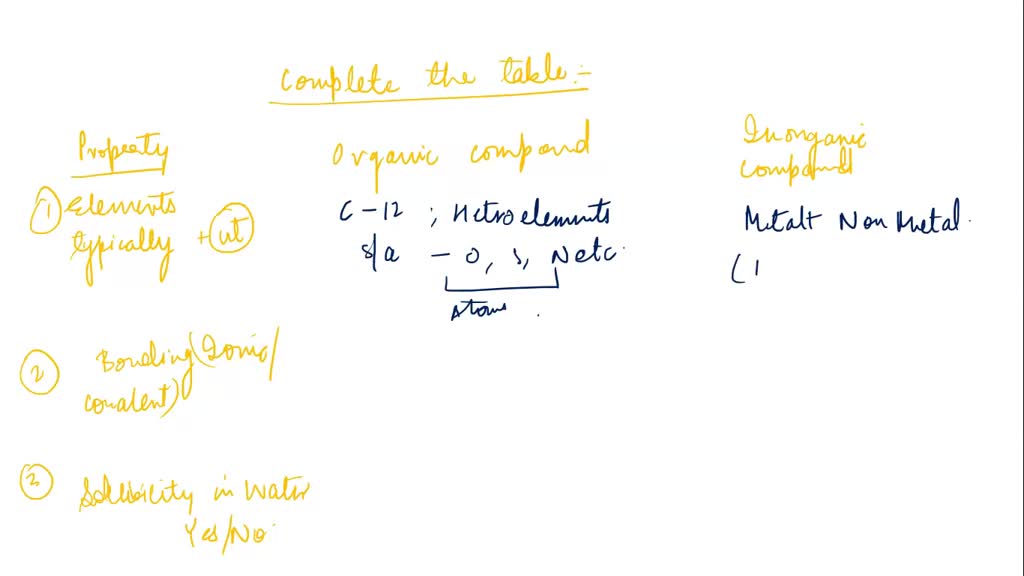 Complete the table:-
Property
Organic compound
Inorganic compound
① Elements typically + nt
C-12 ; Hetroelements
s/a - O, S, N etc.
Atoms .
Metal + Non Metal.
(
② Bonding (Ionic/
covalent)
③ Solubility in Water
Yes/No